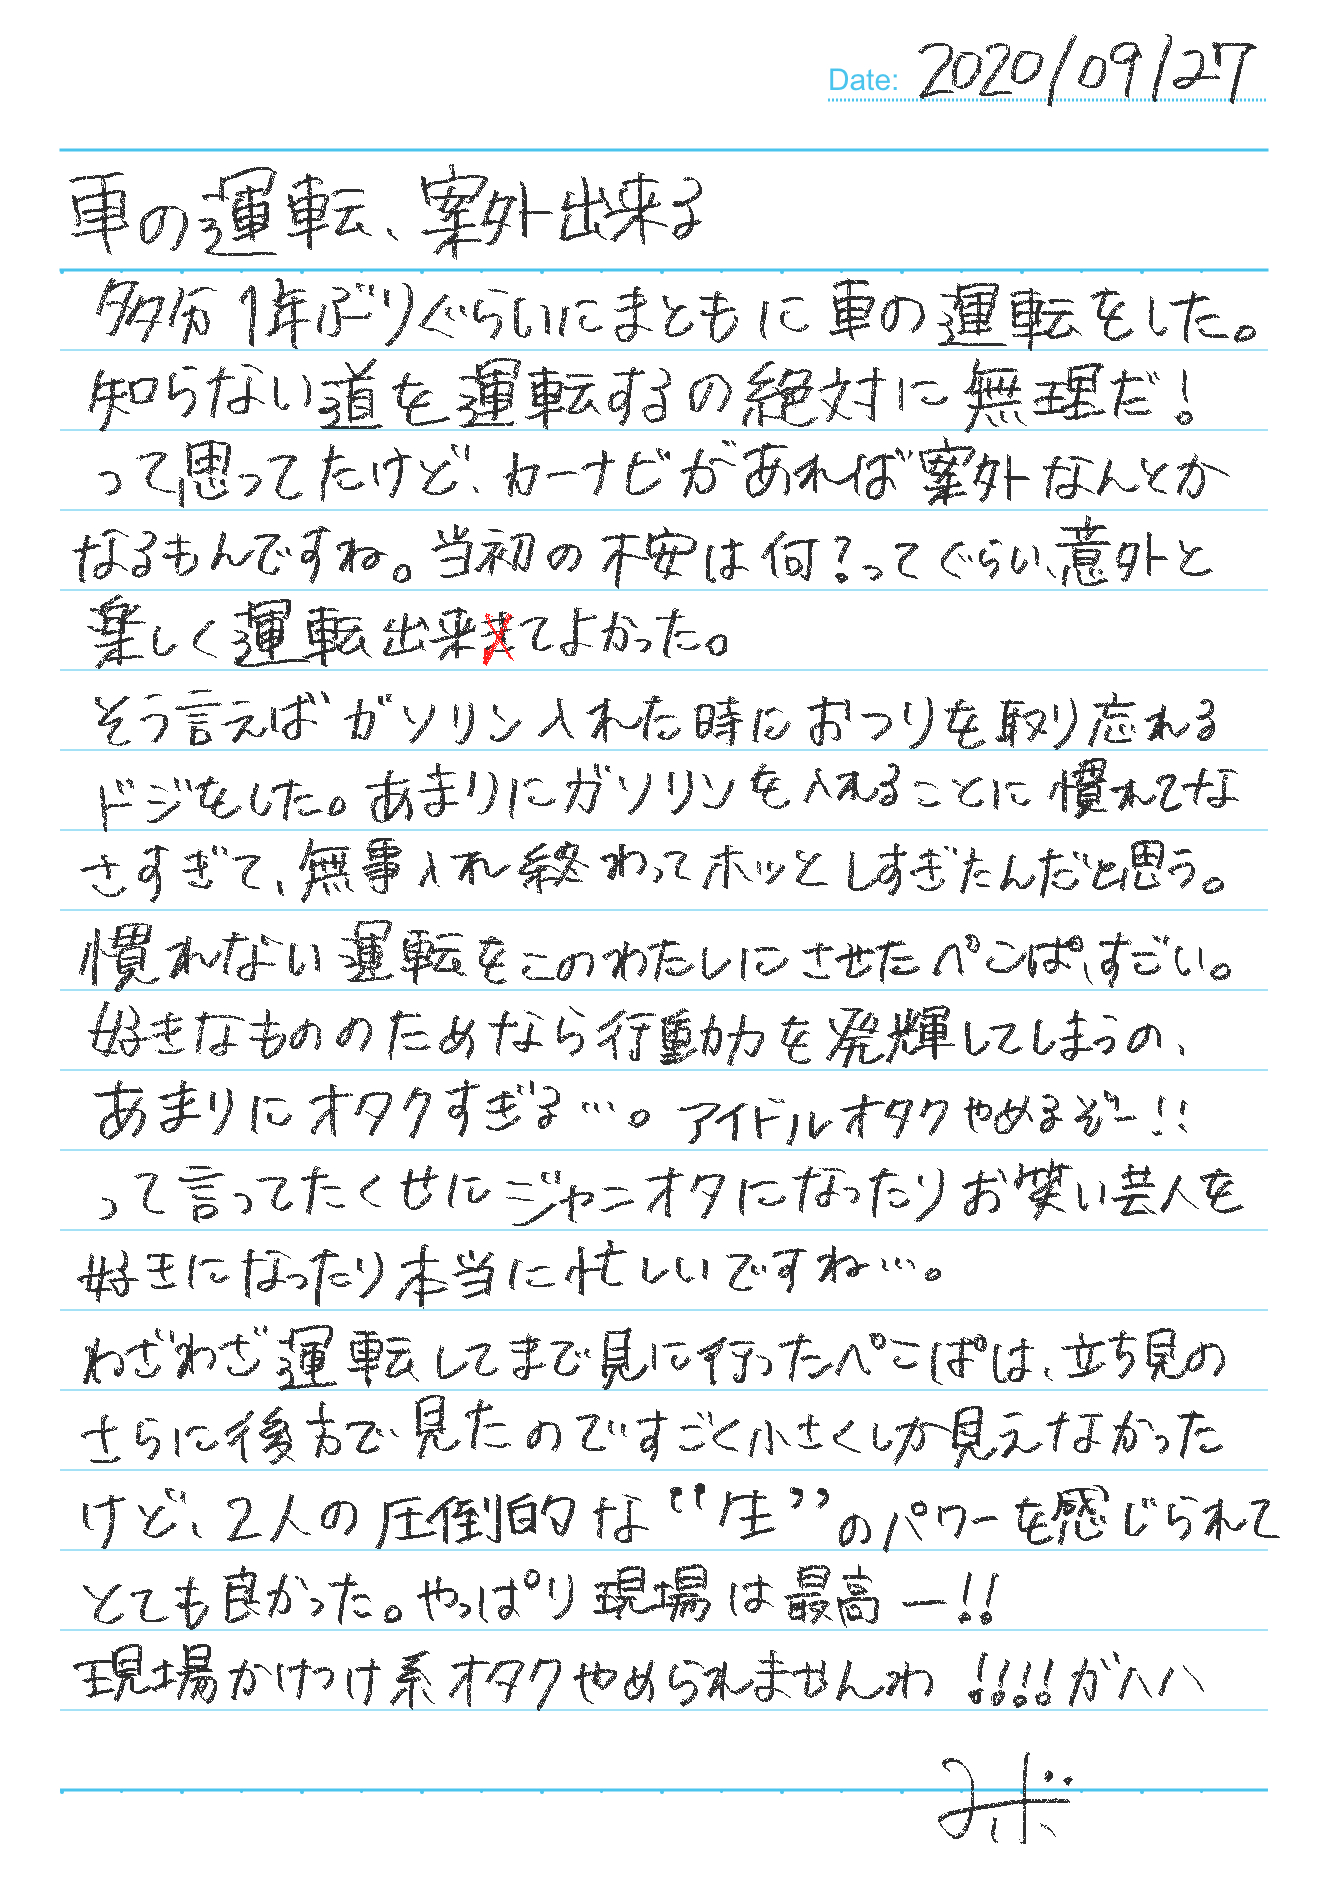 Date: 2020/09/27
車の運転、案外出来る
多分1年ぶりぐらいにまともに車の運転をした。
知らない道を運転するの絶対に無理だ!
って思ってたけど、カーナビがあれば案外なんとか
なるもんですね。当初の不安は何?ってぐらい、意外と
楽しく運転出来きてよかった。
そう言えばガソリン入れた時におつりを取り忘れる
ドジをした。あまりにガソリンを入れることに慣れてな
さすぎて、無事入れ終わってホッとしすぎたんだと思う。
慣れない運転をこのわたしにさせたぺこぱ、すごい。
好きなもののためなら行動力を発輝してしまうの、
あまりにオタクすぎる…。アイドルオタクやめるぞー!!
って言ってたくせにジャニオタになったりお笑い芸人を
好きになったり本当に忙しいですね…。
わざわざ運転してまで見に行ったぺこぱは、立ち見の
さらに後方で見たのですごく小さくしか見えなかった
けど、2人の圧倒的な“生”のパワーを感じられて
とても良かった。やっぱり現場は最高ー!!
現場かけつけ系オタクやめられませんわ!!!!ガハハ
みボ